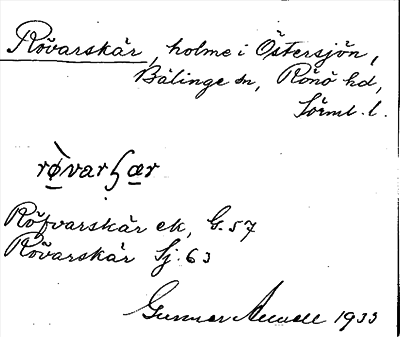 Rövarskär, holme i Östersjön,
Bälinge sn, Rönö hd,
Sörml. l.
rø̀varʂær
Röfvarskär ek, G. 57
Rövarskär Sj. 63
Gunnar 1933